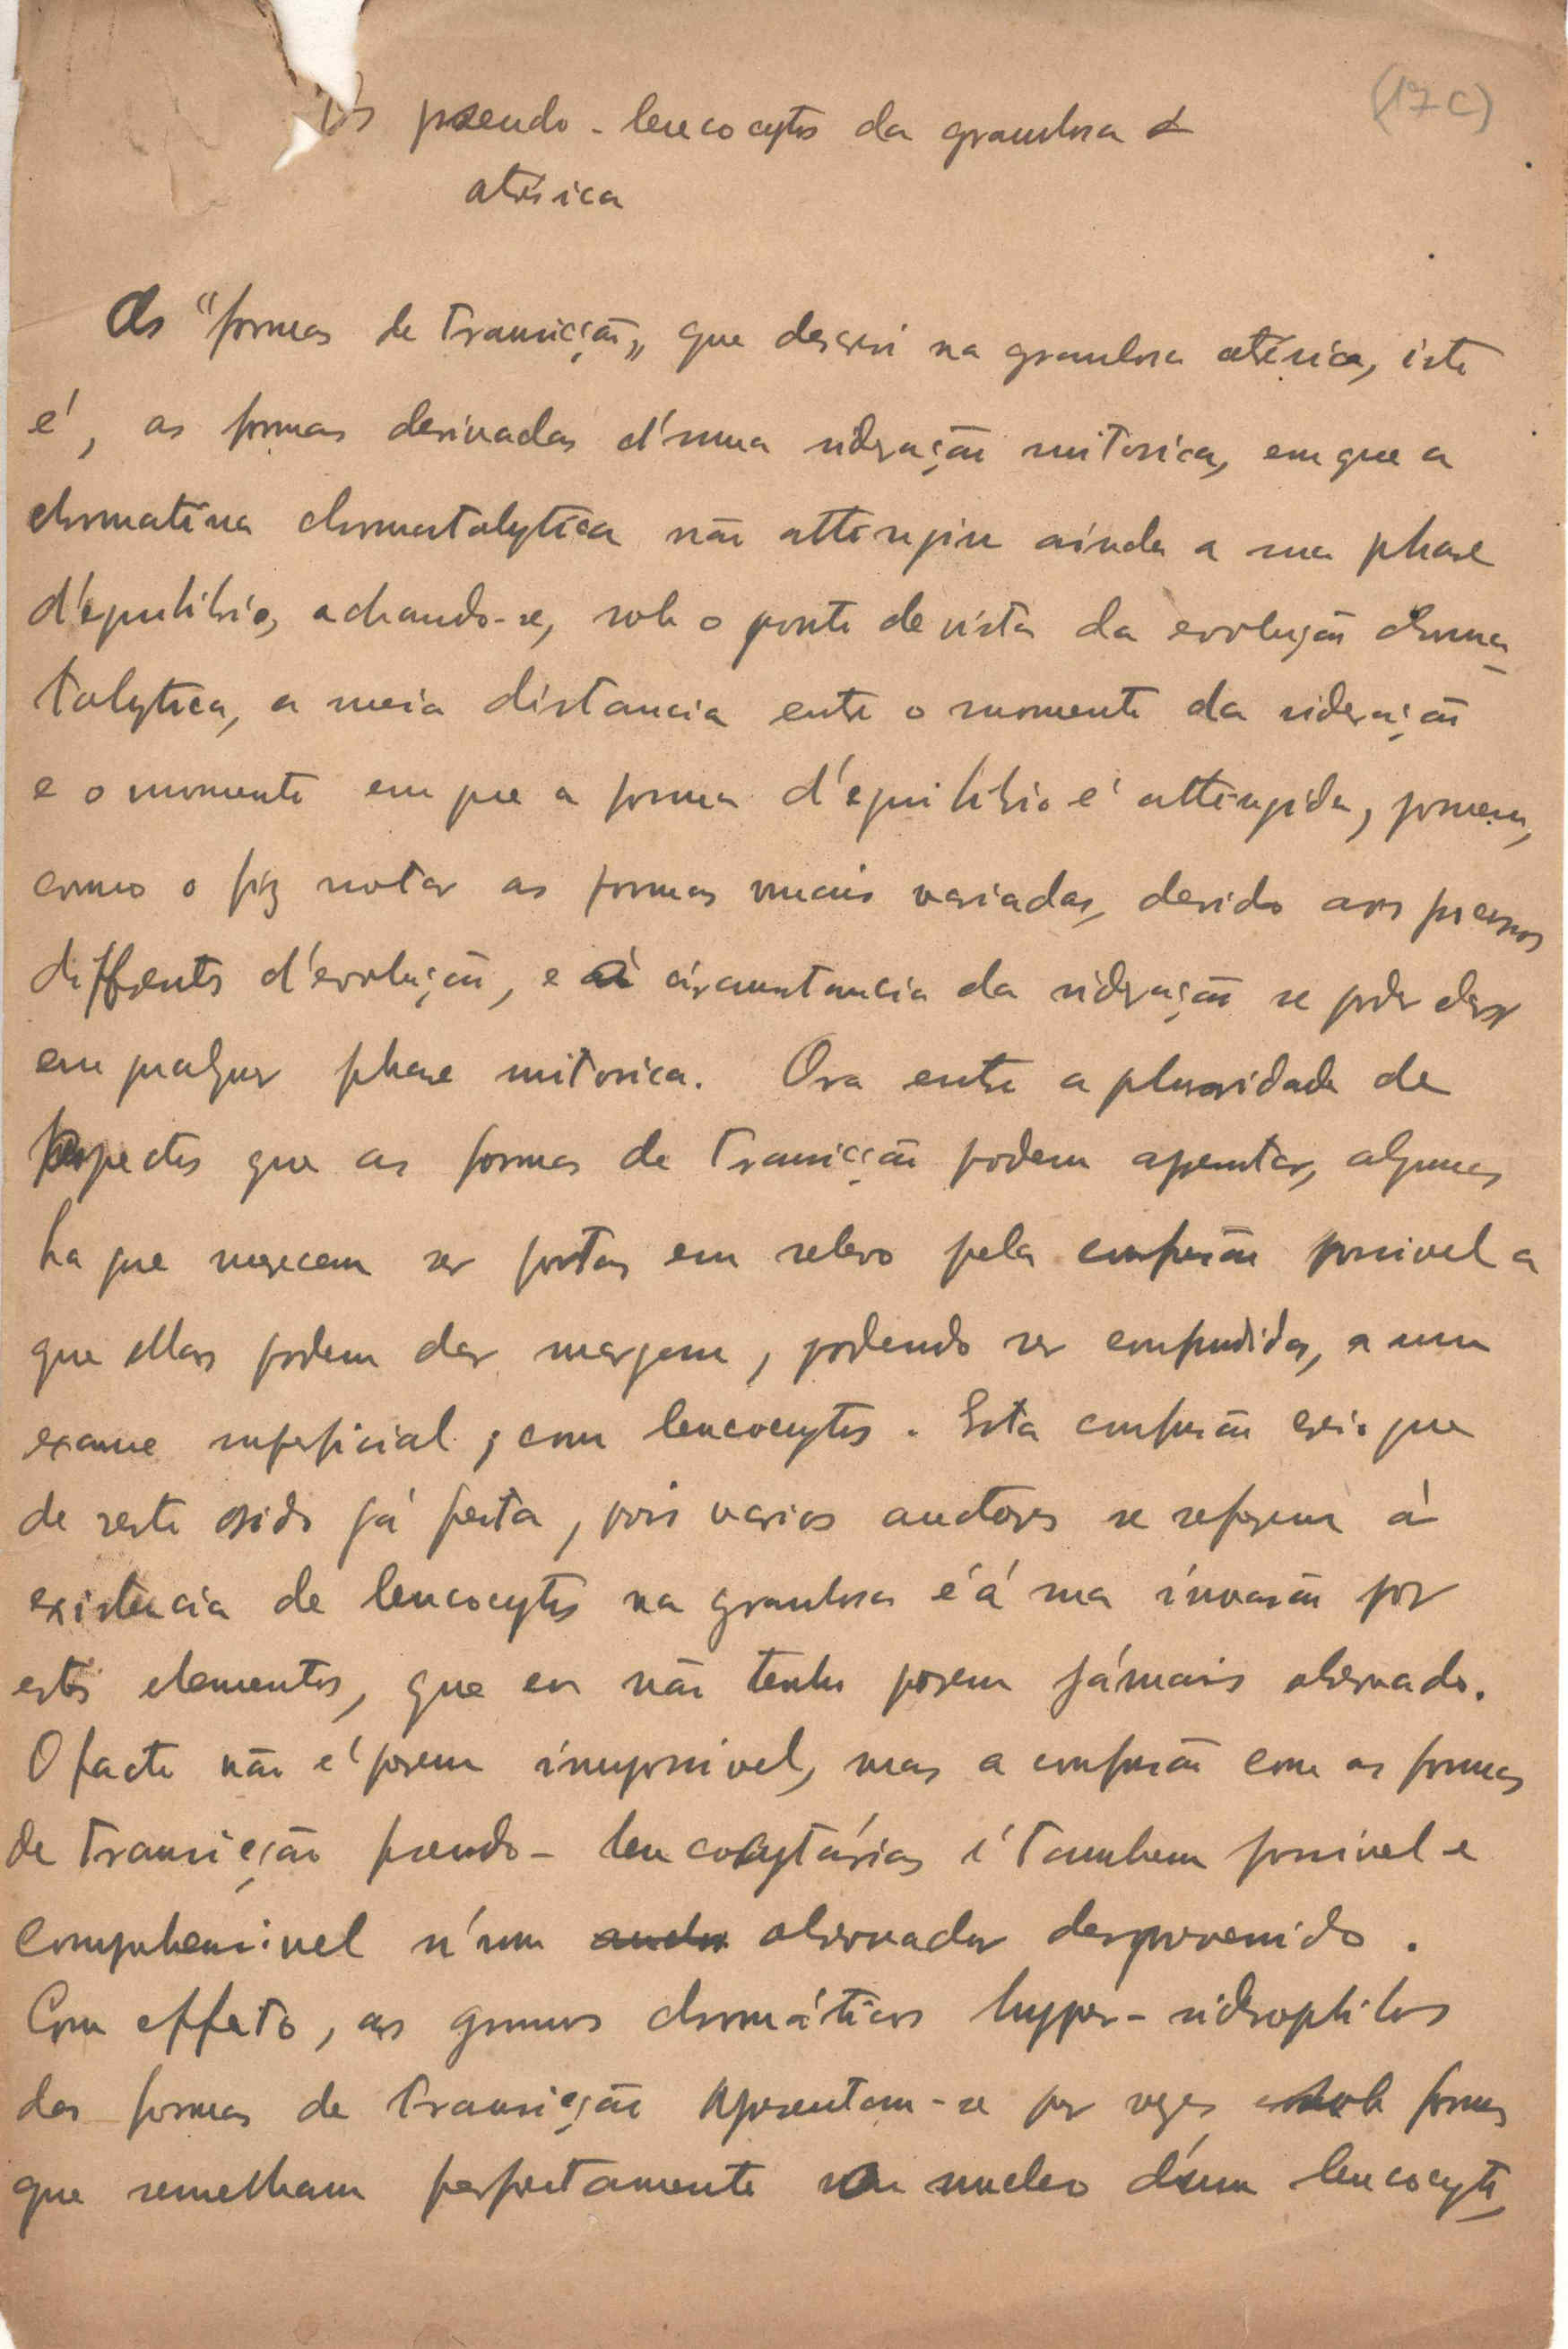 (17c)
Os pseudo-leucocytos da granulosa
atrésica
As "formas de transicção„ que descrevi na granulosa atrésica, isto
é, as formas derivadas d'uma sideração mitosica, em que a
chromatina chromatolytica não attingiu ainda a sua phase
d'equilibrio, achando-se, sob o ponto de vista da evolução chroma-
tolytica, a meia distancia entre o momento da sideração
e o momento em que a forma d'equilibrio é attingida, possuem,
como o fiz notar as formas mais variadas, devido aos processos
differentes d'evolução, e á circumstancia da sideração se poder dar
em qualquer phase mitosica. Ora entre a pluralidade de
aspectos que as formas de transicção podem apresentar, algumas
ha que merecem ser postas em relevo pela confusão possivel a
que ellas podem dar margem, podendo ser confundidas, a um
exame superficial, com leucocytos. Esta confusão creio que
de resto sido já feita, pois varios auctores se referem á
existencia de leucocytos na granulosa e á sua invasão por
estes elementos, que eu não tenho porem jámais observado.
O facto não é porem impossivel, mas a confusão com as formas
de transicção pseudo-leucocytárias é tambem possivel e
comprehensivel n'um observador desprevenido.
Com effeito, os grumos chromáticos hyper-siderophilos
das formas de transicção apresentam-se por vezes sob formas
que semelham perfeitamente o nucleo d'um leucocyto,